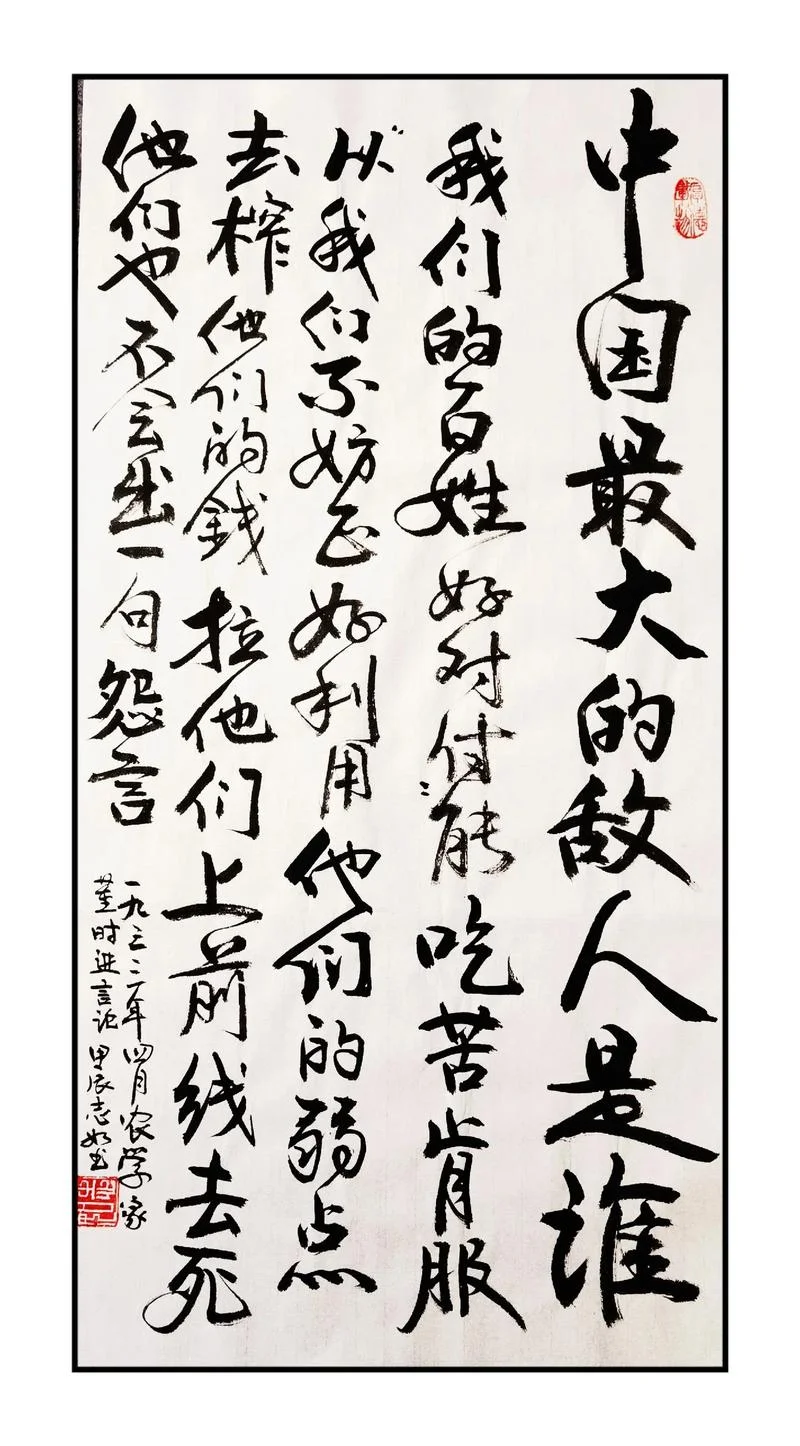 中国最大的敌人是谁
我们的百姓好对付能吃苦肯服
从我们不妨正好利用他们的弱点
去榨他们的錢拉他们上前线去死
他们也不会出一句怨言
一九三二年四月农学家
董时进言论甲辰志如书